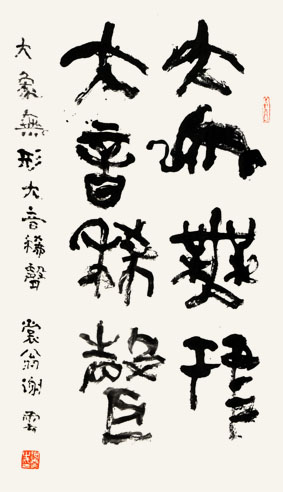 大象無形
大音稀聲
大象無形大音稀聲 裳翁謝雲